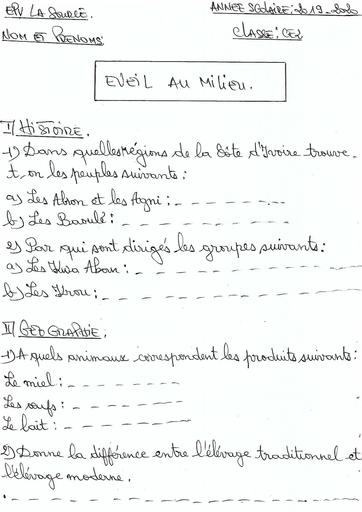 EPV LA SOURCE.
ANNEE SCOLAIRE: 2019-2020
NOM ET PRENOMS
CLASSE: CE2
EVEIL AU MILIEU.
I/ HISTOIRE.
1) Dans quelles régions de la Côte d'Ivoire trouve-
t-on les peuples suivants:
a) Les Abron et les Agni:
b) Les Baoulé:
2) Par qui sont dirigés les groupes suivants:
a) Les Kwa Akan:
b) Les Krou:
II/ GEOGRAPHIE.
1) A quels animaux correspondent les produits suivants:
Le miel:
Les œufs:
Le lait:
2) Donne la différence entre l'élévage traditionnel et
l'élévage moderne.